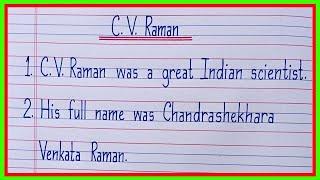 C.V. Raman
1. C.V. Raman was a great Indian scientist.
2. His full name was Chandrashekhara
Venkata Raman.